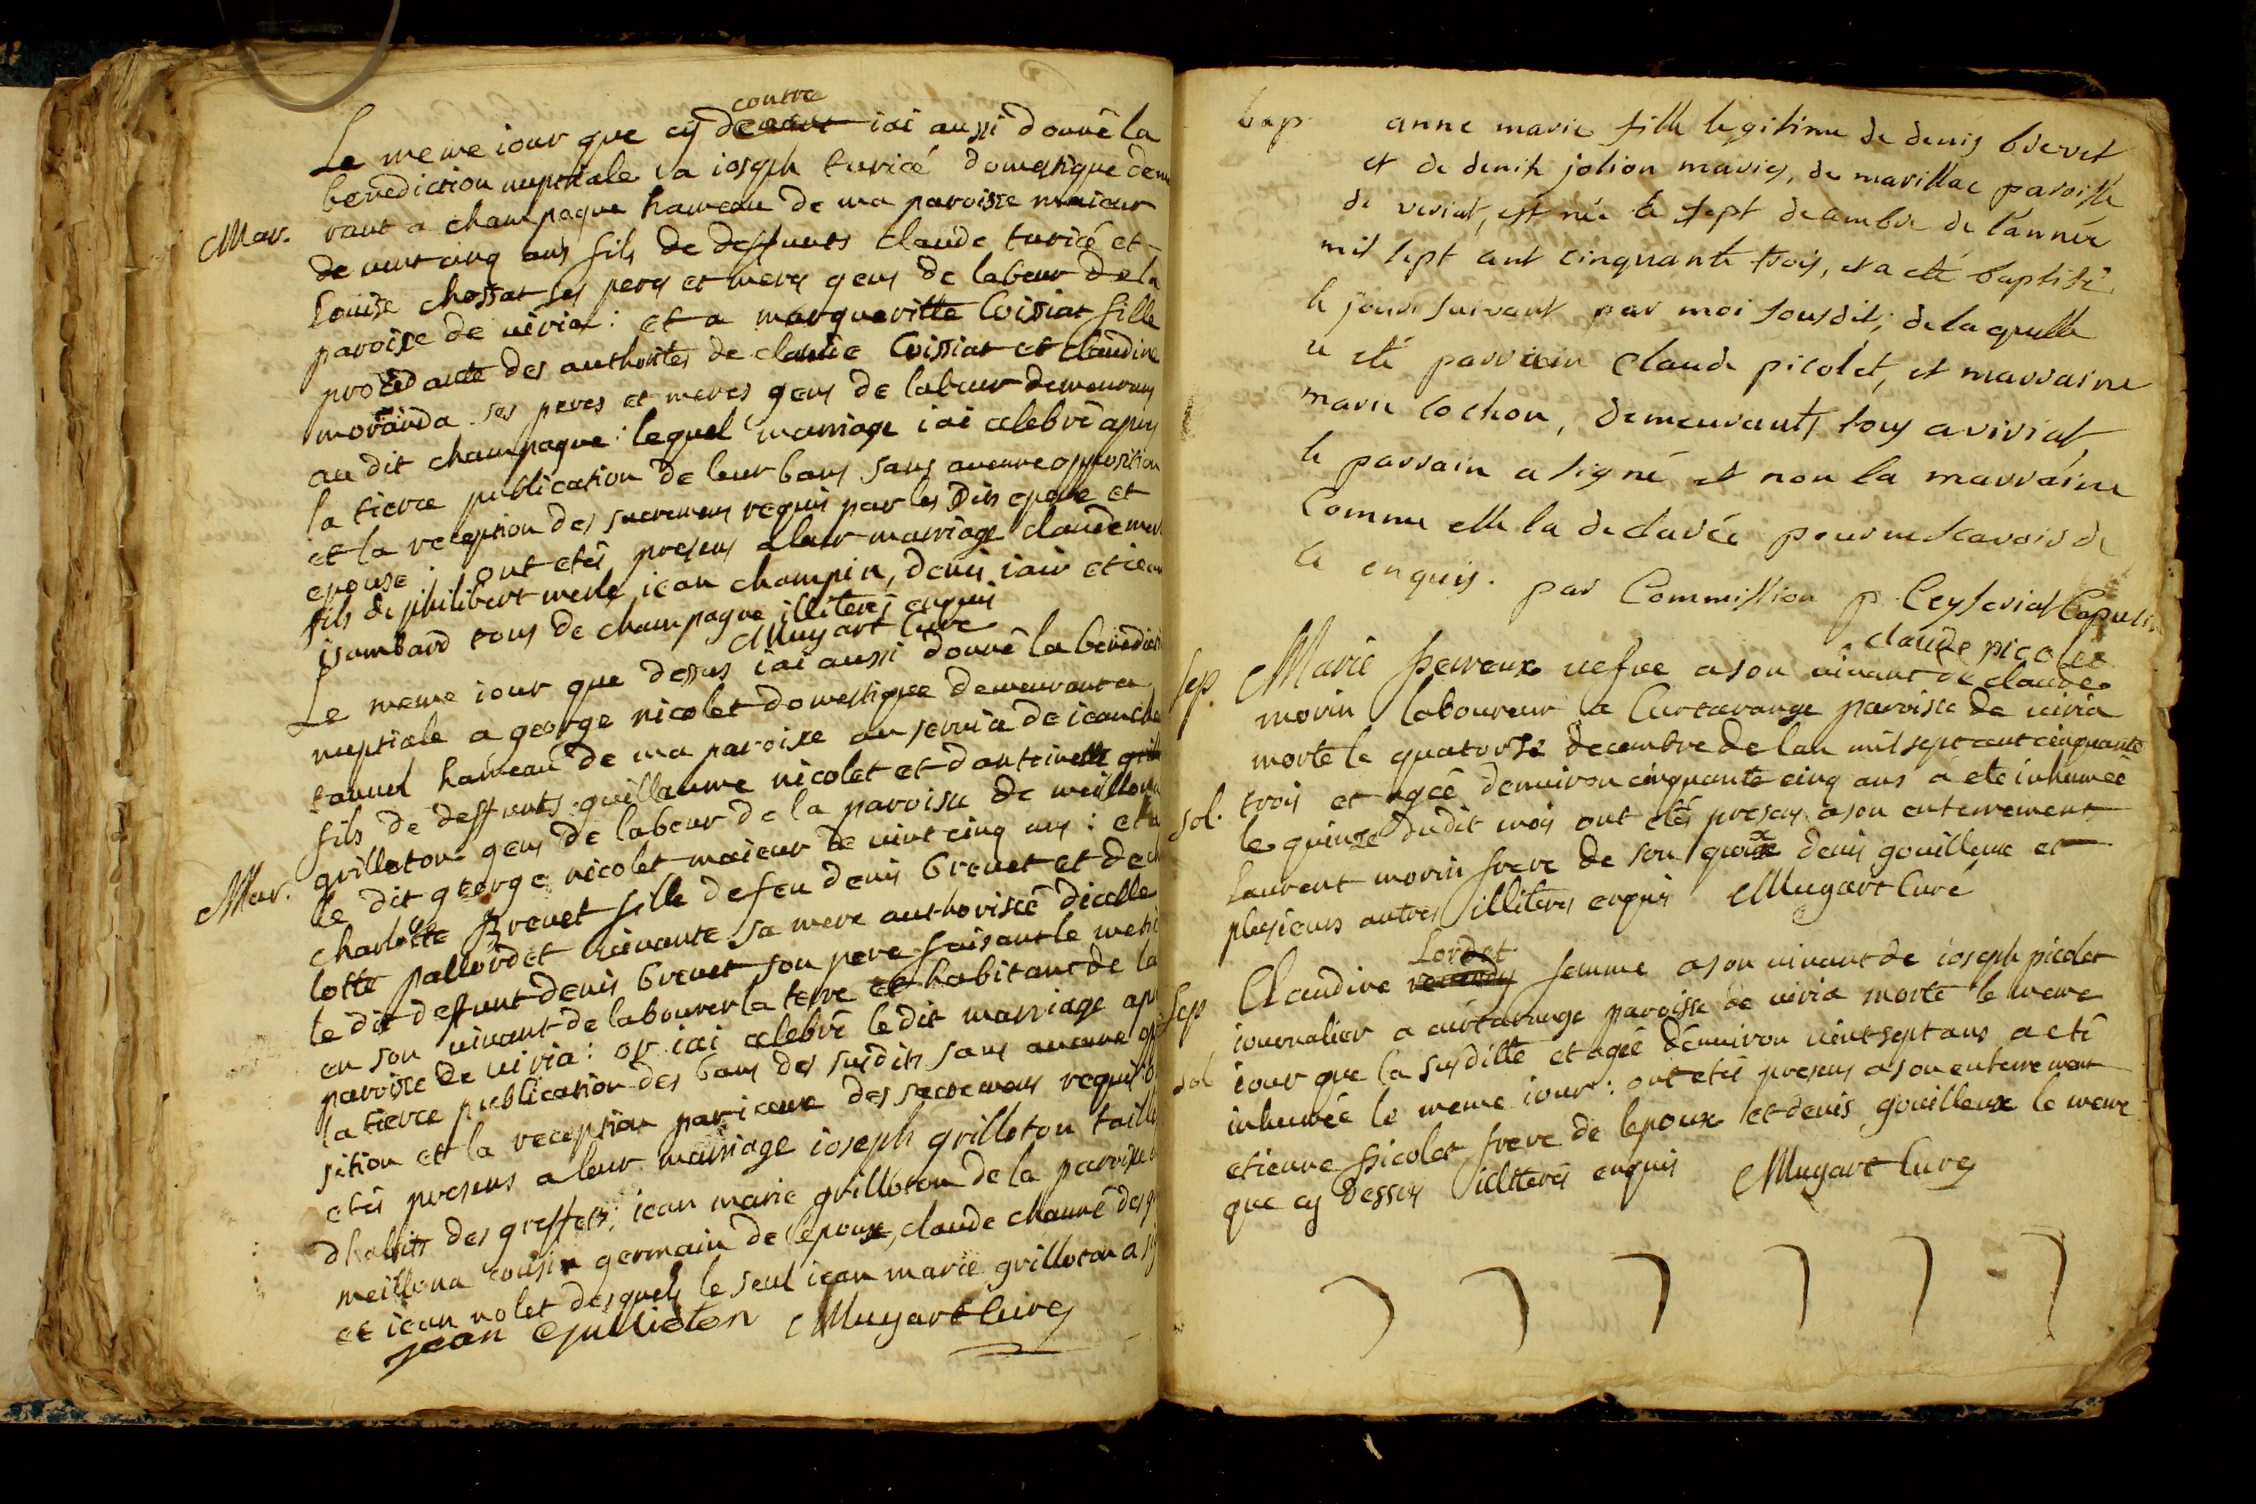 contre
Le meme iour que cy devant iai aussi donné la
benediction nuptiale a ioseph turicé domestique demeu
Mar. rant a champagne hameau de ma paroisse maieur
de vint cinq ans fils de deffunts claude turicé et
Louise chossat ses peres et meres gens de labeur de la
paroisse de viria : et a margueritte Coissiat fille
procedante des authorités de claude Coissiat et claudine
moranda ses peres et meres gens de labeur demeurans
au dit champagne : lequel marriage iai celebré apres
la tierce publication de leur bans sans aucune opposition
et la reception des sacremens requis par les dits epoux et
epouse : ont etés presens a leur marriage claude merle
fils de philibert merle, iean champin, denis iair et iean
isambard tous de champagne illiterés enquis
Mugart Curé
Le meme iour que dessus iai aussi donné la benediction
nuptiale a george nicolet domestique demeurant a
tanuel hameau de ma paroisse au service de iean
fils de deffunts guillaume nicolet et dantoinette
grilleton gens de labeur de la paroisse de meillona
Mar. le dit george nicolet maieur de vint cinq ans : et a
charlotte Brevet fille de feu denis brevet et de
lotte pallordet vivante sa mere authorisée dicelle
le dit deffunt denis brevet son pere faisant le
en son vivant de labourer la terre et habitant de la
paroisse de viria : or iai celebré le dit marriage
la tierce publication des bans des susdits sans aucune
sition et la reception par iceux des sacremens requis
etés presens a leur marriage ioseph grilleton
dhabits des greffets, iean marie grilloton de la paroisse
meillona cousin germain de lepoux, claude chauné
et iean nolet desquels le seul iean marie grilloton a
jean Grilleton Mugart Curé
bap. anne marie fille legitime de denis brevet
et de denise jolion mariés, de marillac paroisse
de viriat, est née le sept decembre de l'année
mil sept cent cinquante trois, et a eté baptisée
le jour suivant par moi sousdit, de laquelle
a eté parrain Claude picolet, et marraine
marie cochon, demeurants tous a viriat
le parrain a signé et non la marraine
Comme elle la declarée pour ne scavoir de
ce enquis. par Commission p. Ceyseriat Capucin
claude picolet
Sep. Marie perreux vefve a son vivant de claude
morin laboureur a Curtarange paroisse de viria
morte le quatorse decembre de lan mil sept cent cinquante
sol. trois et agée denviron cinquante cinq ans a eté inhumée
le quinse du dit mois ont etés presens a son enterrement
Laurent morin frere de son epoux denis gouilleux et
plusieurs autres illiterés enquis Mugart Curé
Lordet
Sep Claudine femme a son vivant de ioseph picolet
iournalier a curtarange paroisse de viria morte le meme
sol iour que la susditte et agée denviron vint sept ans a eté
inhumée le meme iour : ont etés presens a son enterrement
etienne picolet frere de lepoux et denis gouilleux le meme
que cy dessus illiterés enquis Mugart Curé